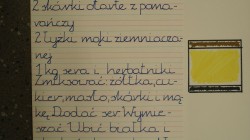 2 skórki otarte z poma-
rańczy
2 łyżki mąki ziemniacza-
nej
1 kg sera i herbatniki
Zmiksować: żółtka, cu-
kier, masło, skórki i mą-
kę. Dodać ser. Wymie-
szać. Ubić białka i